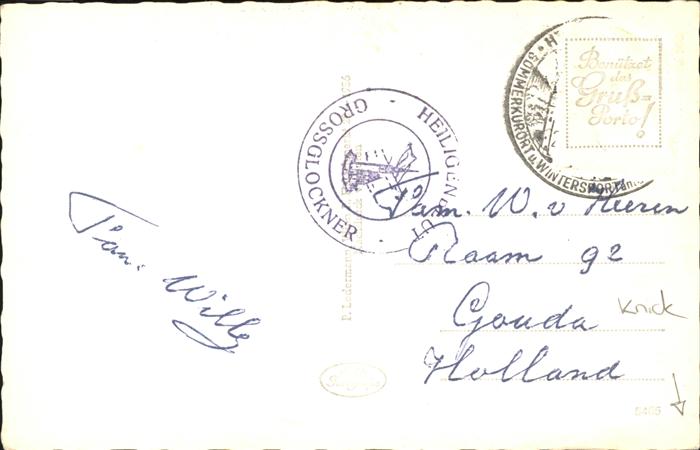 Benützet
das
Gruß=
Porto!
SOMMERKURORT u. WINTERSPORT
HEILIGENBLUT
GROSSGLOCKNER
P. Ledermann
Fam. W. v Heeren
Raam 92
Gouda
Holland
Knick
Fam. Willy
5405